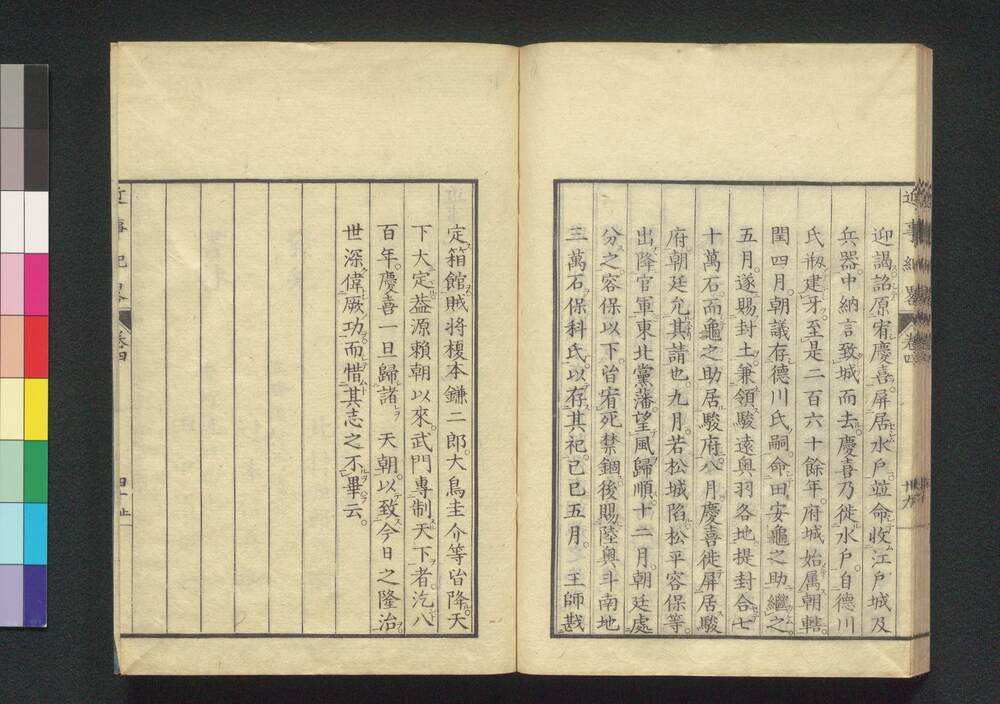 迎謁詔原宥慶喜屏居水戸竝命收江戸城及
兵器中納言致城而去慶喜乃徙水戸自德川
氏剏建牙至是二百六十餘年府城始属朝轄
閏四月朝議存德川氏嗣命田安龜之助繼之
五月遂賜封土兼領駿遠奥羽各地提封合七
十萬石而龜之助居駿府八月慶喜徙屏居駿
府朝廷允其請也九月若松城陷松平容保等
出降官軍東北黨藩望風歸順十二月朝廷處
分之容保以下皆宥死禁錮後賜陸奥斗南地
三萬石保科氏以存其祀己巳五月 王師戡
定箱館賊将榎本鎌二郎大鳥圭介等皆降天
下大定葢源賴朝以來武門專制天下者汔八
百年慶喜一旦歸諸 天朝以致今日之隆治
世深偉厥功而惜其志之不畢云
近事紀畧 卷四